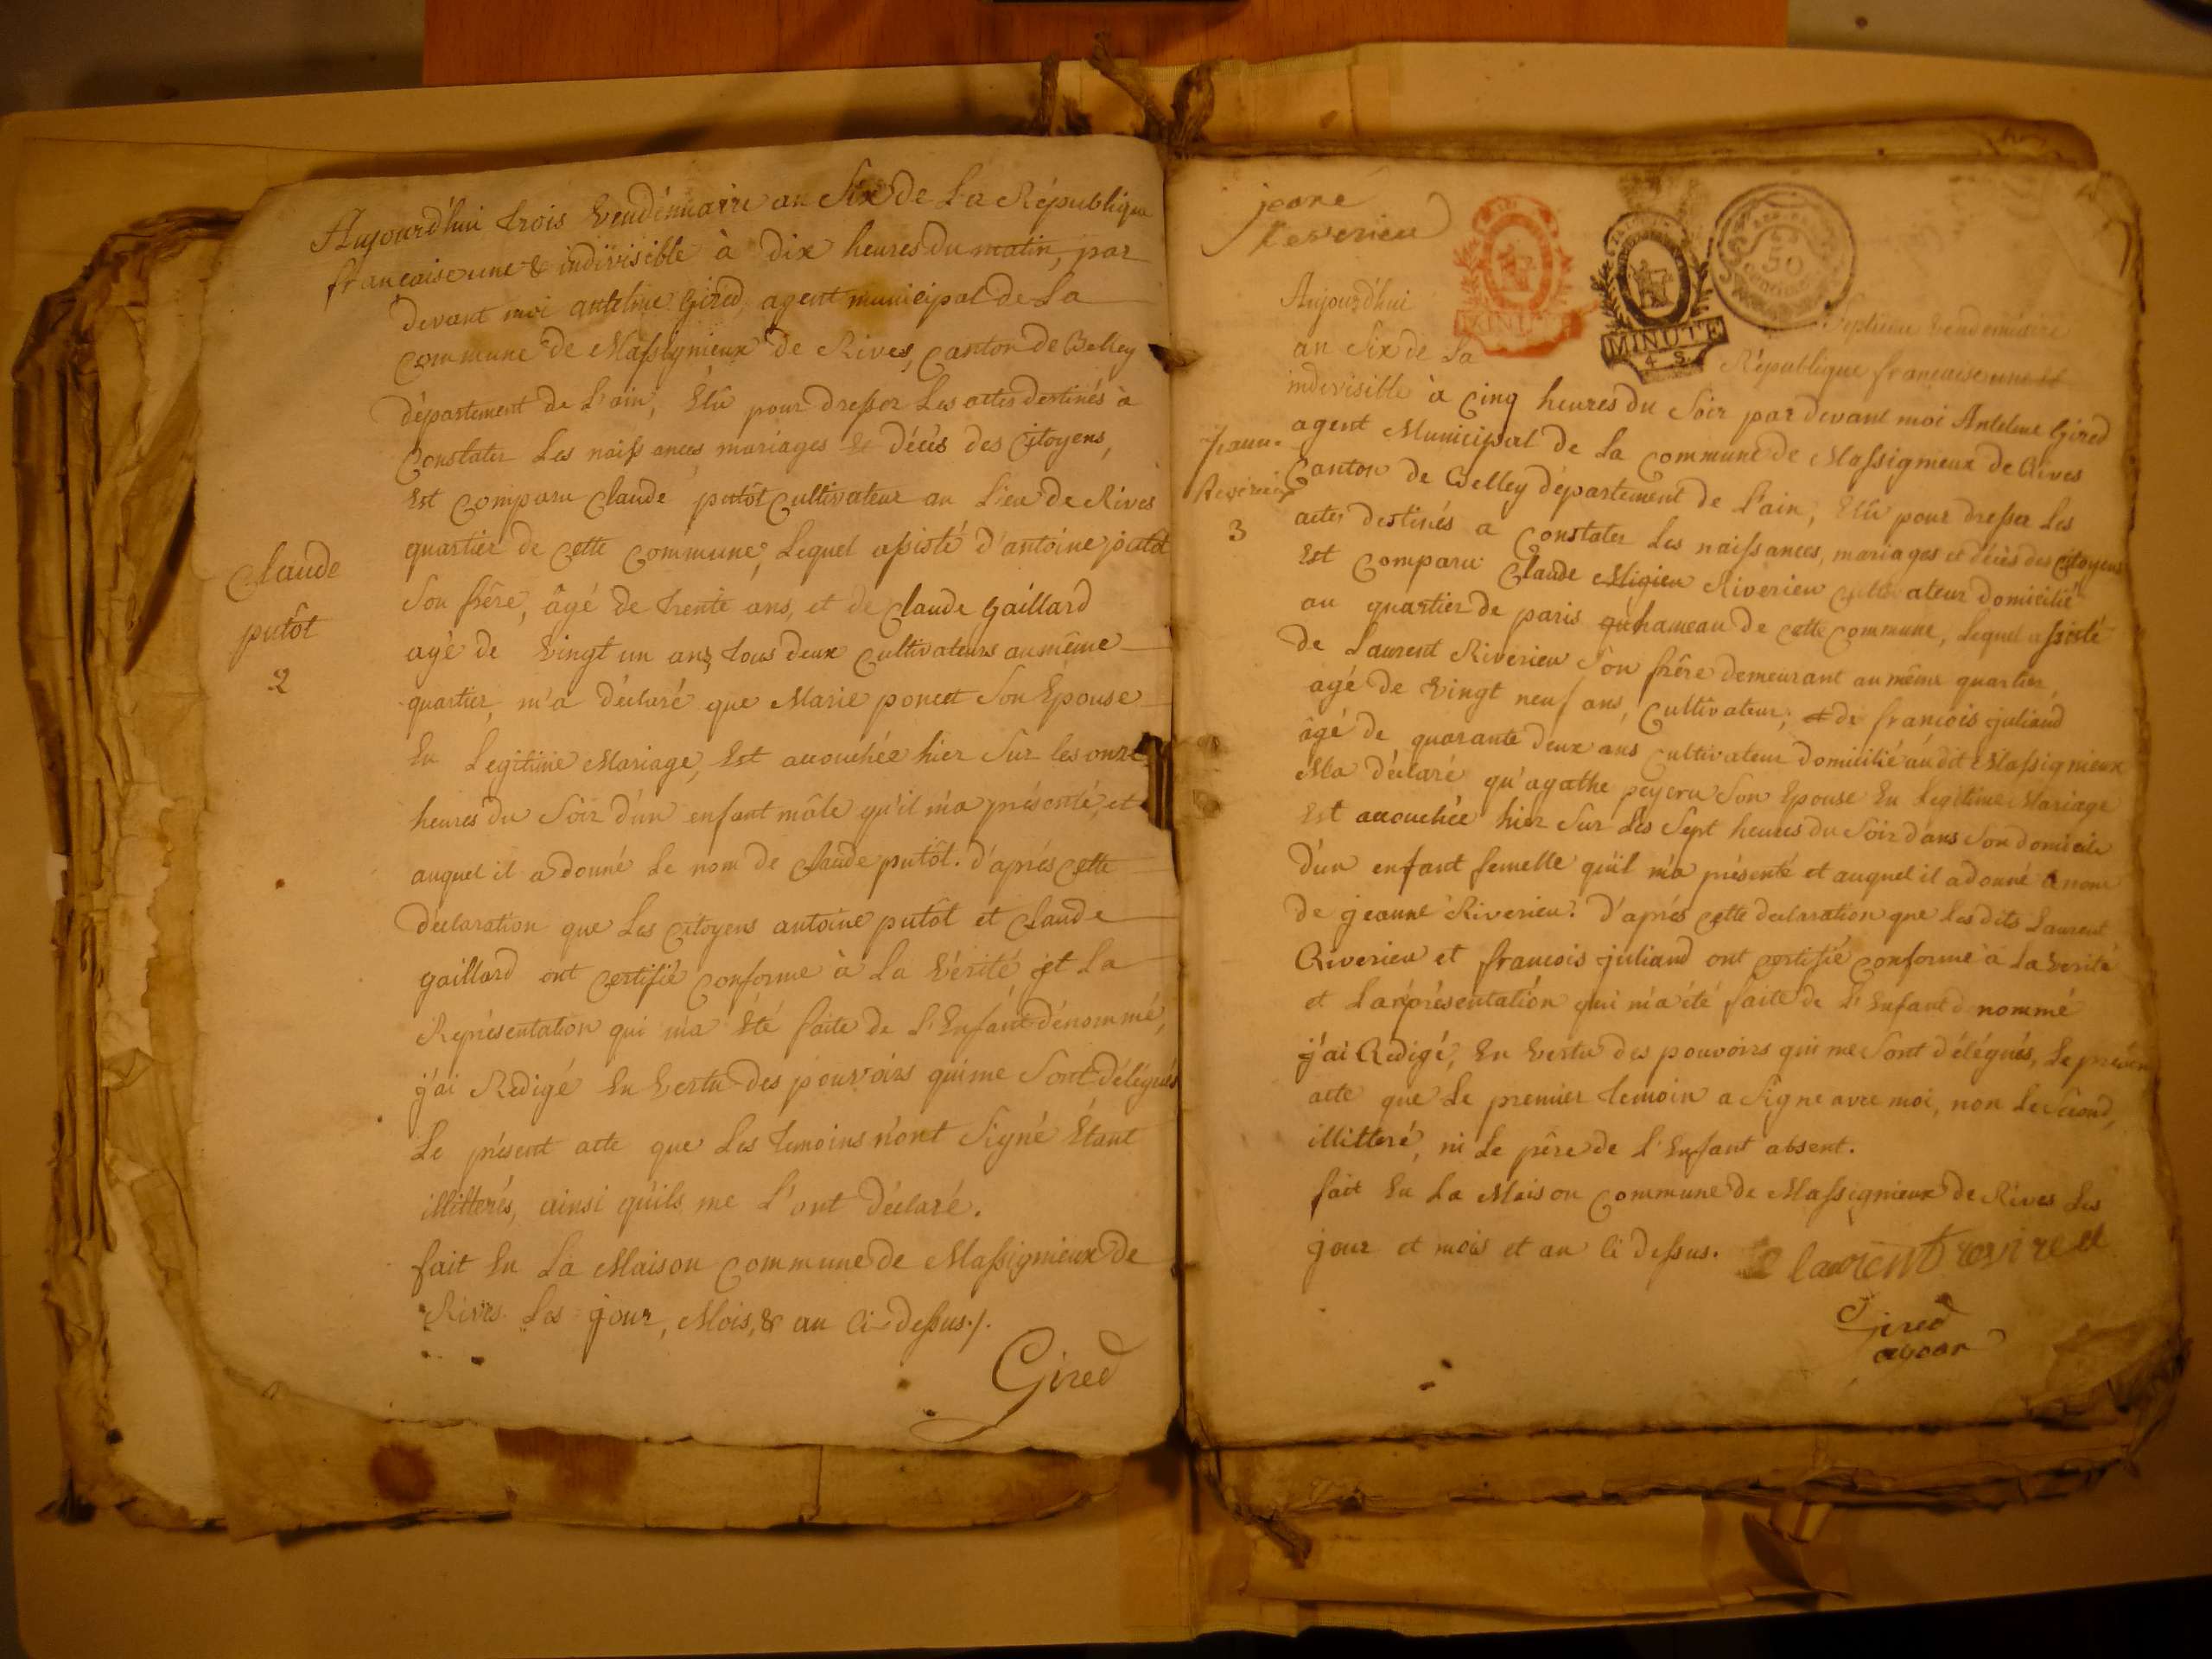 Aujourd'hui trois Vendémiaire an Six De La République
francaise une & indivisible à Dix heures du matin, par
Devant moi antelme Gired, agent municipal de La
Commune de Massignieux de Rives, Canton de Belley
département de L'ain, Élu pour dresser Les actes destinés à
Constater Les naissances, mariages & décès des Citoyens,
Est Comparu Claude putôt Cultivateur au Lieu de Rives
quartier de Cette Commune, Lequel assisté d'antoine putôt
Son frère, âgé de trente ans, et de Claude Gaillard
agé de Vingt un ans tous deux Cultivateurs au même
quartier, m'a déclaré que Marie poncet Son Épouse
En Legitime Mariage, Est accouchée hier Sur les onze
heures du Soir d'un enfant mâle qu'il m'a présenté, et
auquel il a donné Le nom de Claude putôt. d'après Cette
declaration que Les Citoyens antoine putôt et Claude
gaillard ont Certifié Conforme à La Vérité, et La
Représentation qui m'a Été faite de L'Enfant dénommé,
j'ai Redigé En Vertu des pouvoirs qui me Sont délégués
Le présent acte que Les temoins n'ont Signé Étant
illitterés, ainsi qu'ils me L'ont déclaré.
fait En La Maison Commune de Massignieux de
Rives Les jour, Mois, & an Ci-dessus./.
Gired
Claude
putôt
2
jeane
Reverieu
MINUTE
MINUTE
4 S.
50
Centimes
Aujourd'hui Vendemiaire
an Six de La République francaise une et
indivisible à Cinq heures du Soir par devant moi Antelme Gired
agent Municipal de La Commune de Massignieux de Rives
Canton de Belley département de L'ain, Élu pour dresser Les
actes destinés a Constater Les naissances, mariages et décès des Citoyens
Est Comparu Claude Migieu Riverieu Cultivateur domicilié
au quartier de paris hameau de Cette Commune, Lequel assisté
de Laurent Riverieu Son frère demeurant au même quartier,
agé de Vingt neuf ans, Cultivateur, et de francois juliand
âgé de quarante deux ans Cultivateur domicilié audit Massignieux
M'a déclaré qu'agathe peyeru Son Epouse En Legitime Mariage
Est accouchée hier Sur Les Sept heures du Soir dans Son domicile
d'un enfant femelle qu'il m'a présenté et auquel il a donné Le nom
de jeanne Riverieu. D'après Cette declaration que Les dits Laurent
Riverieu et francois juliand ont Certifié Conforme à La Verité
et La représentation qui m'a été faite de L'Enfant dénommé
j'ai Redigé, En Vertu des pouvoirs qui me Sont délégués, Le présent
acte que Le premier temoin a Signé avec moi, non Le Second,
illitteré, ni Le père de L'Enfant absent.
fait En La Maison Commune de Massignieux de Rives Les
jour et mois et an Ci dessus.
laurent
Gired
Jeanne
Reverieu
3